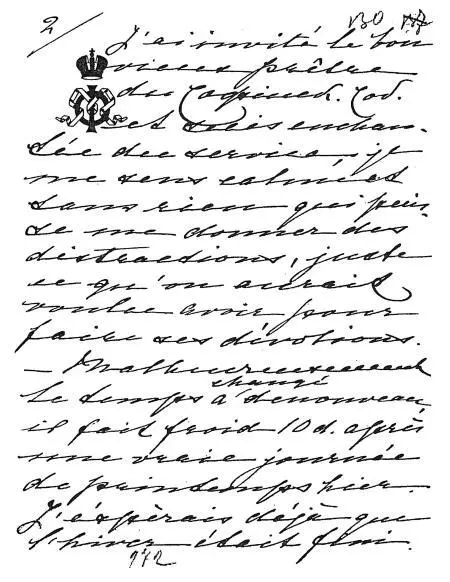 2/
130
J'ai invité le bon
vieux prêtre
du
et suis enchan-
tée du service, je
me sens calme et
sans rien qui puis-
se me donner des
distractions, juste
ce qu'on aurait
voulu avoir pour
faire ses dévotions.
— Malheureusement
le temps a changé denouveau,
il fait froid 10 d. après
une vraie journée
de printemps hier.
J'éspèrais déjà que
l'hiver était fini.
972